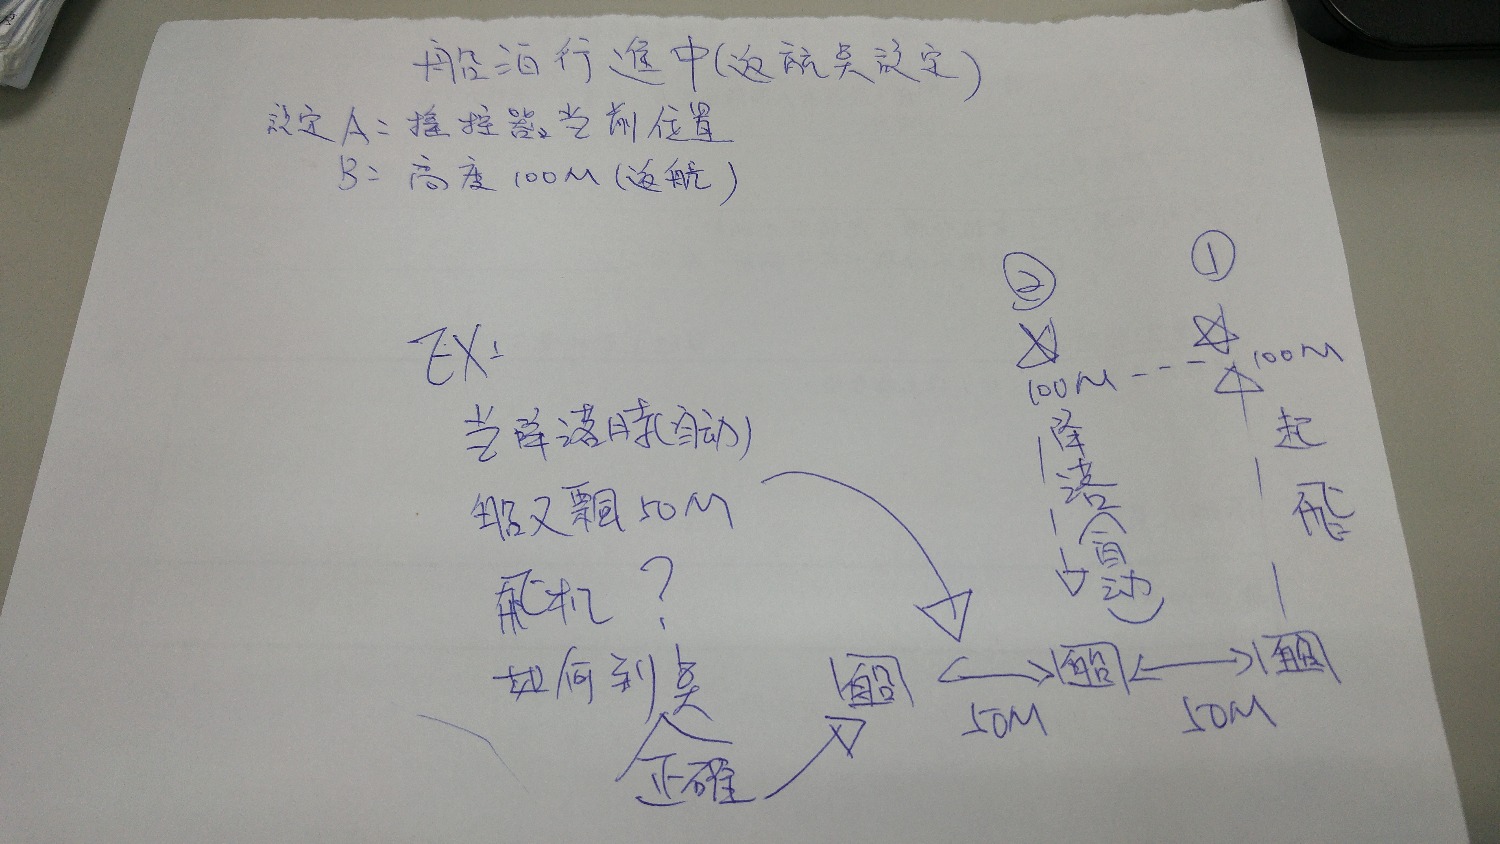 船泊行進中(返航点設定)
設定 A=搖控器當前位置
B=高度100M(返航)
EX:
当降落時(自动)
船又飄50M
飛机?
如何到点
正確
②
100M
降落(自动)
①
100M
起飛
船
50M
船
50M
船